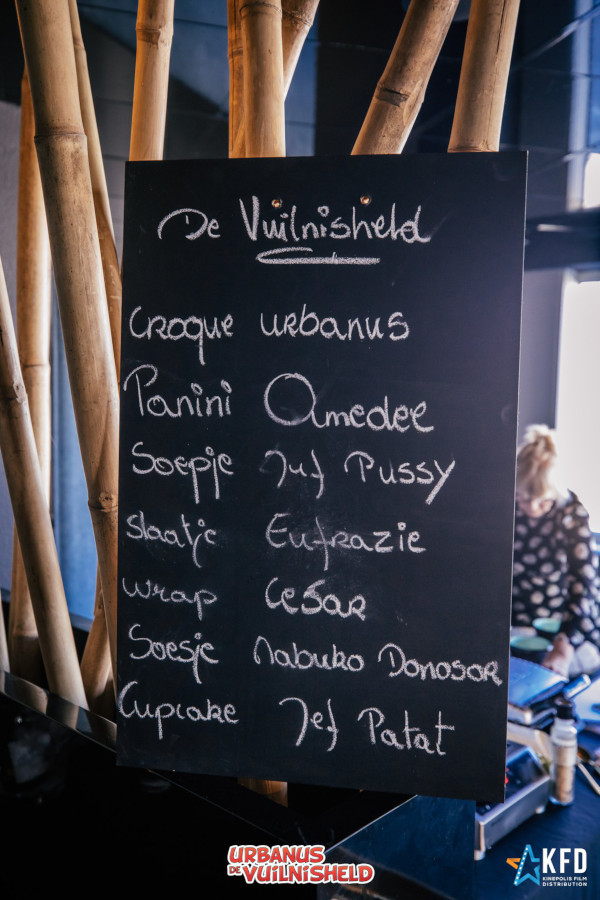 De Vuilnisheld
Croque urbanus
Panini Amedee
Soepje Juf Pussy
Slaatje Eufrazie
Wrap Cesar
Soesje Nabuko Donosor
Cupcake Jef Patat
URBANUS
DE VUILNISHELD
KFD
KINEPOLIS FILM
DISTRIBUTION